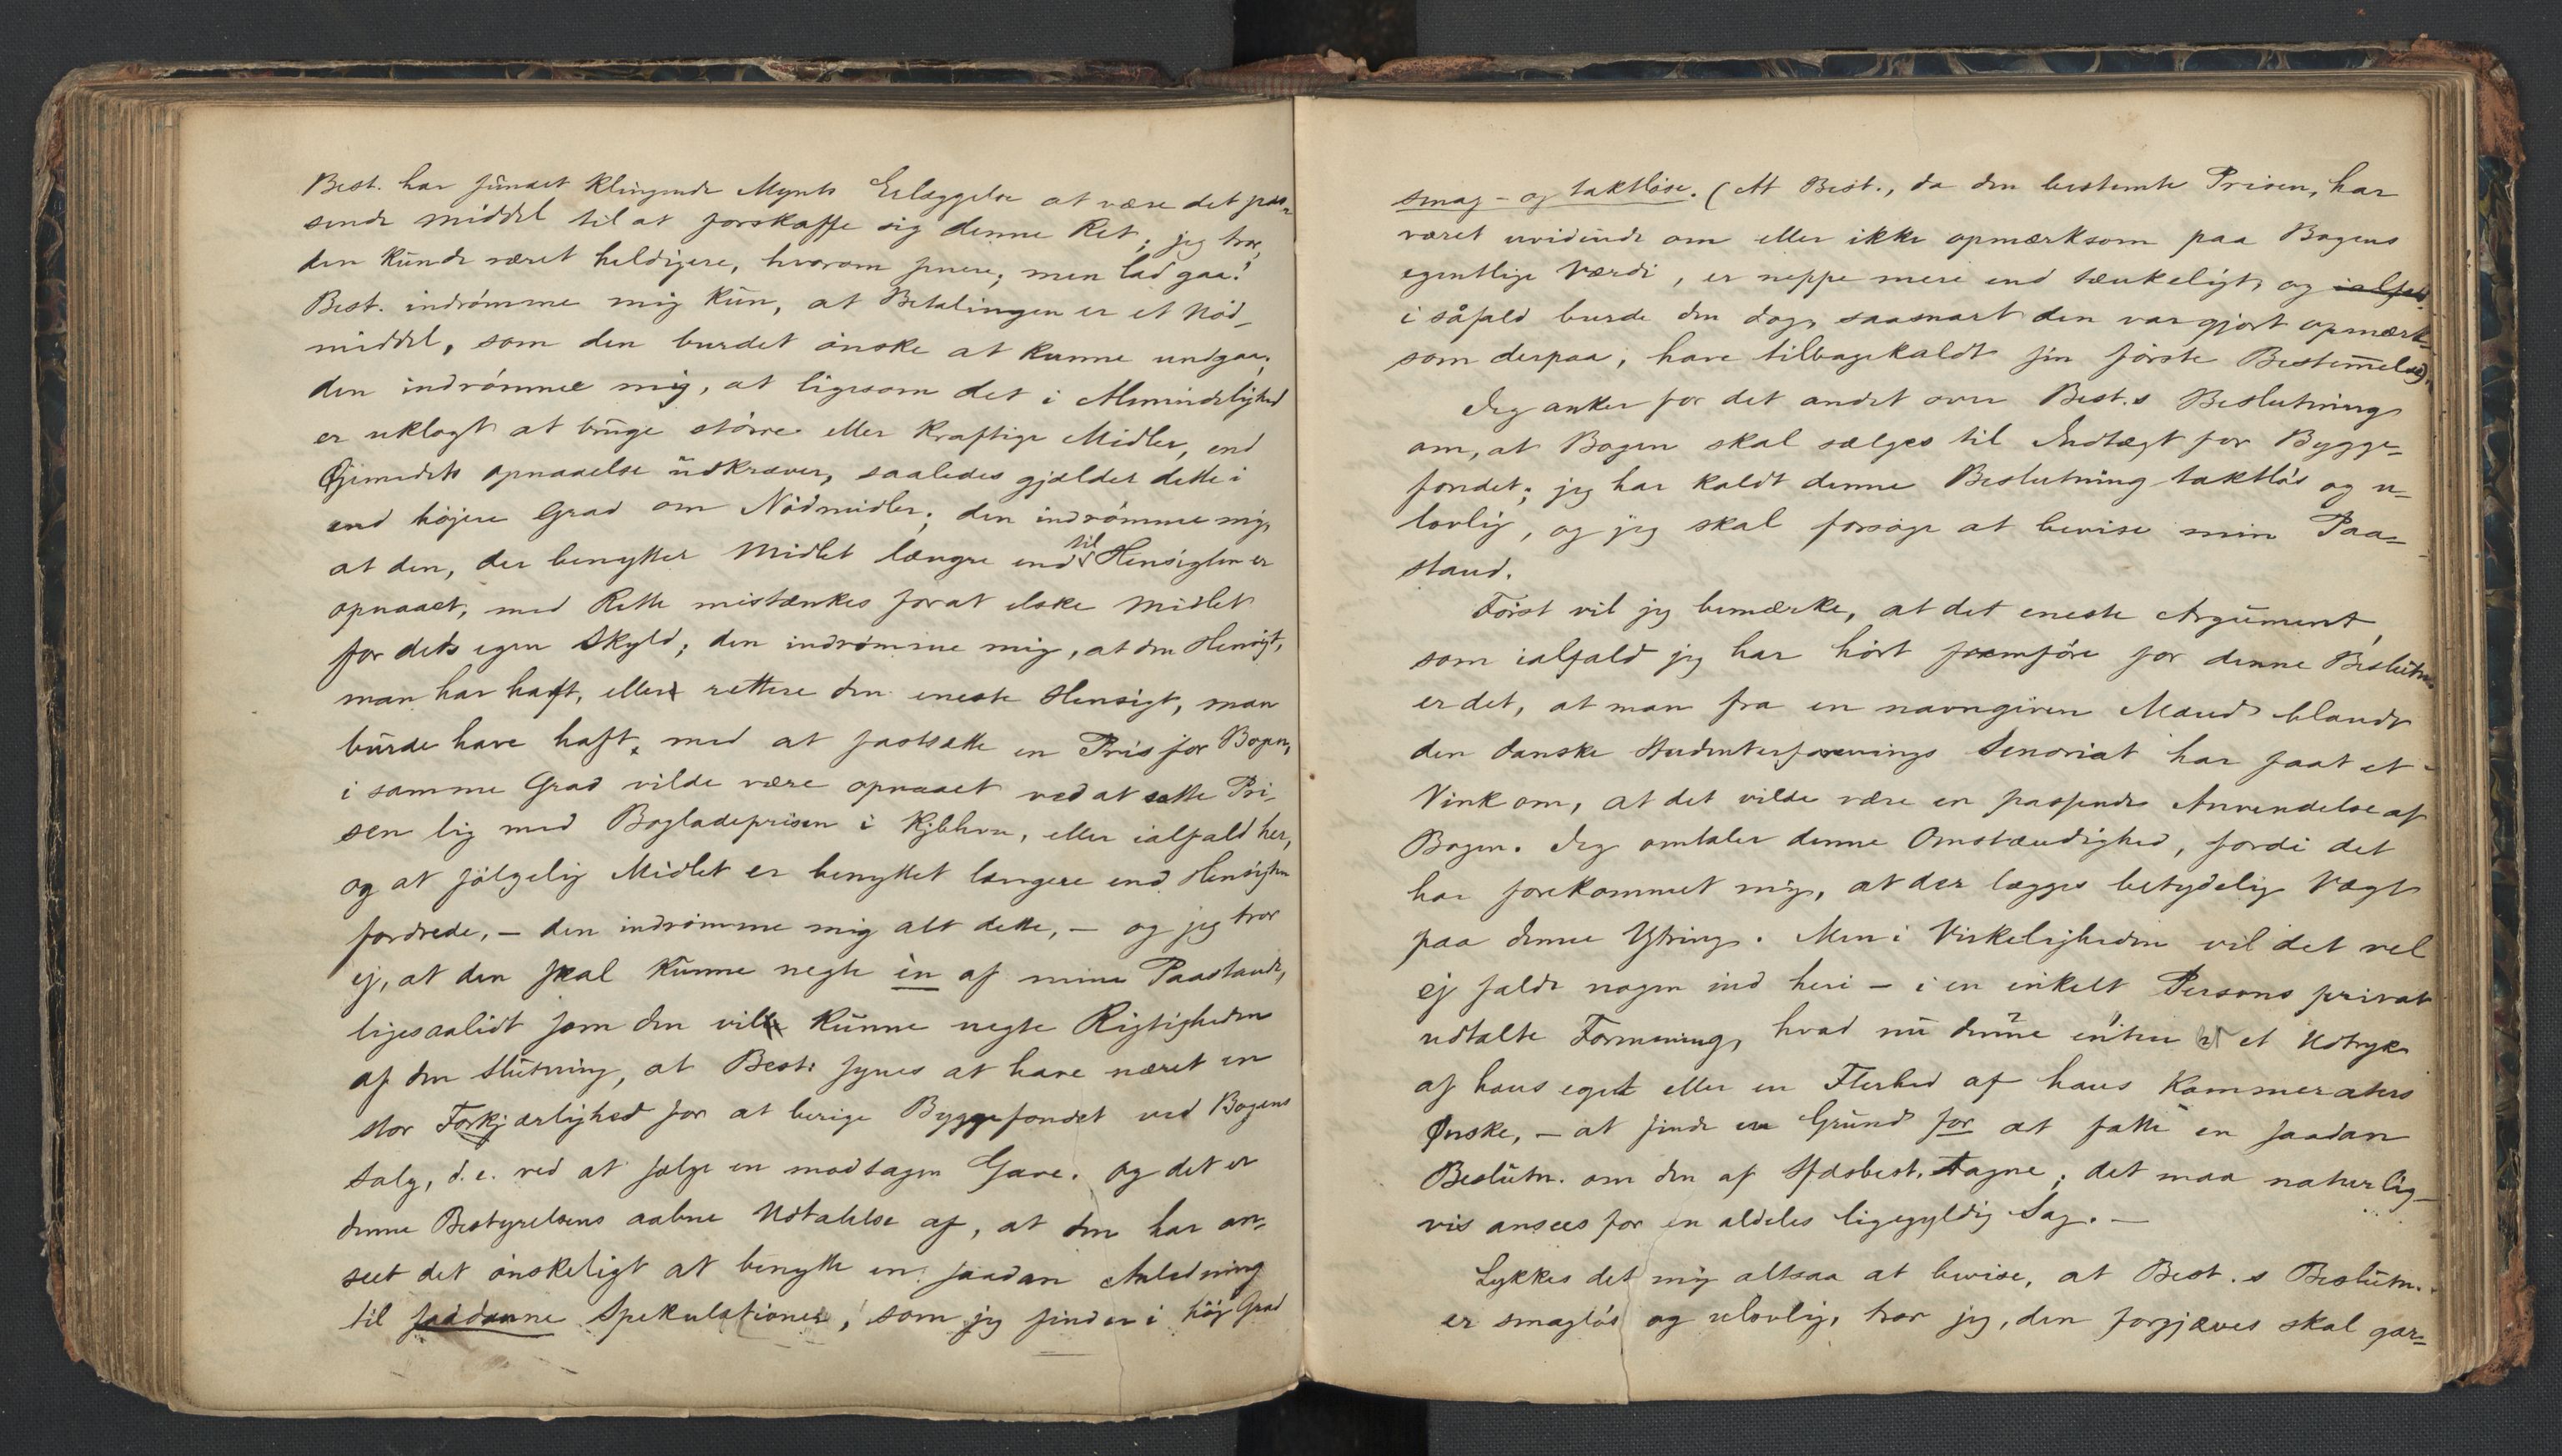 Best. har fundet klingende Mynts Erlæggelse at være det pas-
sende Middel til at forskaffe sig denne Ret; jeg tror,
den kunde været heldigere, hvorom senere; men lad gaa!
Best. indrømme mig kun, at Betalingen er et Nød-
middel, som den burdet ønske at kunne undgaa;
den indrømme mig, at ligesom det i Almindelighed
er uklogt at bruge større eller kraftige Midler, end
Øjemedets Opnaaelse udkræver, saaledes gjælder dette i
end højere Grad om Nødmidler; den indrømme mig,
at den, der benytter Midlet længre end til Hensigten er
opnaaet, med Rette mistænkes for at elske Midlet
for dets egen Skyld; den indrømme mig, at den Hensigt,
man har haft, eller rettere den eneste Hensigt, man
burde have haft, med at fastsætte en Pris for Bogen,
i samme Grad vilde være opnaaet ved at sætte Pri-
sen lig med Bogladeprisen i Kjbhvn, eller ialfald her,
og at følgelig Midlet er benyttet længere end Hensigten
fordrede, – den indrømme mig alt dette, – og jeg tror
ej, at den skal kunne negte èn af mine Paastande,
ligesaalidt som den vil kunne negte Rigtigheden
af den Slutning, at Best. synes at have næret en
stor Forkjærlighed for at berige Byggefondet ved Bogens
Salg, d. e. ved at sælge en modtagen Gave. Og det er
denne Bestyrelsens aabne Udtalelse af, at den har an-
seet det ønskeligt at benytte en saadan Anledning
til saadanne Spekulationer, som jeg finder i høj Grad
smag- og taktløse. (At Best., da den bestemte Prisen, har
været uvidende om eller ikke opmærksom paa Bogens
egentlige Værdi, er neppe mere end tænkeligt, og ialfald
i såfald burde den dog, saasnart den var gjort opmærk-
som derpaa, have tilbagekaldt sin første Bestemmelse).
Jeg anker for det andet over Best.s Beslutning
om, at Bogen skal sælges til Indtægt for Bygge-
fondet; jeg har kaldt denne Beslutning taktløs og u-
lovlig, og jeg skal forsøge at bevise min Paa-
stand.
Først vil jeg bemærke, at det eneste Argument,
som ialfald jeg har hørt fremføre for denne Beslutn.
er det, at man fra en navngiven Mand blandt
den danske Studenterforenings Senoriat har faat et
Vink om, at det vilde være en passende Anvendelse af
Bogen. Jeg omtaler denne Omstændighed, fordi det
har forekommet mig, at der lægges betydelig Vægt
paa denne Ytring. Men i Virkeligheden vil det vel
ej falde nogen ind heri – i en enkelt Persons privat
udtalte Formening, hvad nu denne enten er et Udtryk
af hans eget eller en Flerhed af hans Kammeraters
Ønske, – at finde en Grund for at fatte en saadan
Beslutn. om den af Sfdsbest. tagne; det maa naturlig-
vis ansees for en aldeles ligegyldig Sag. –
Lykkes det mig altsaa at bevise, at Best.s Beslutn.
er smagløs og ulovlig, tror jeg, den forgjæves skal gar-